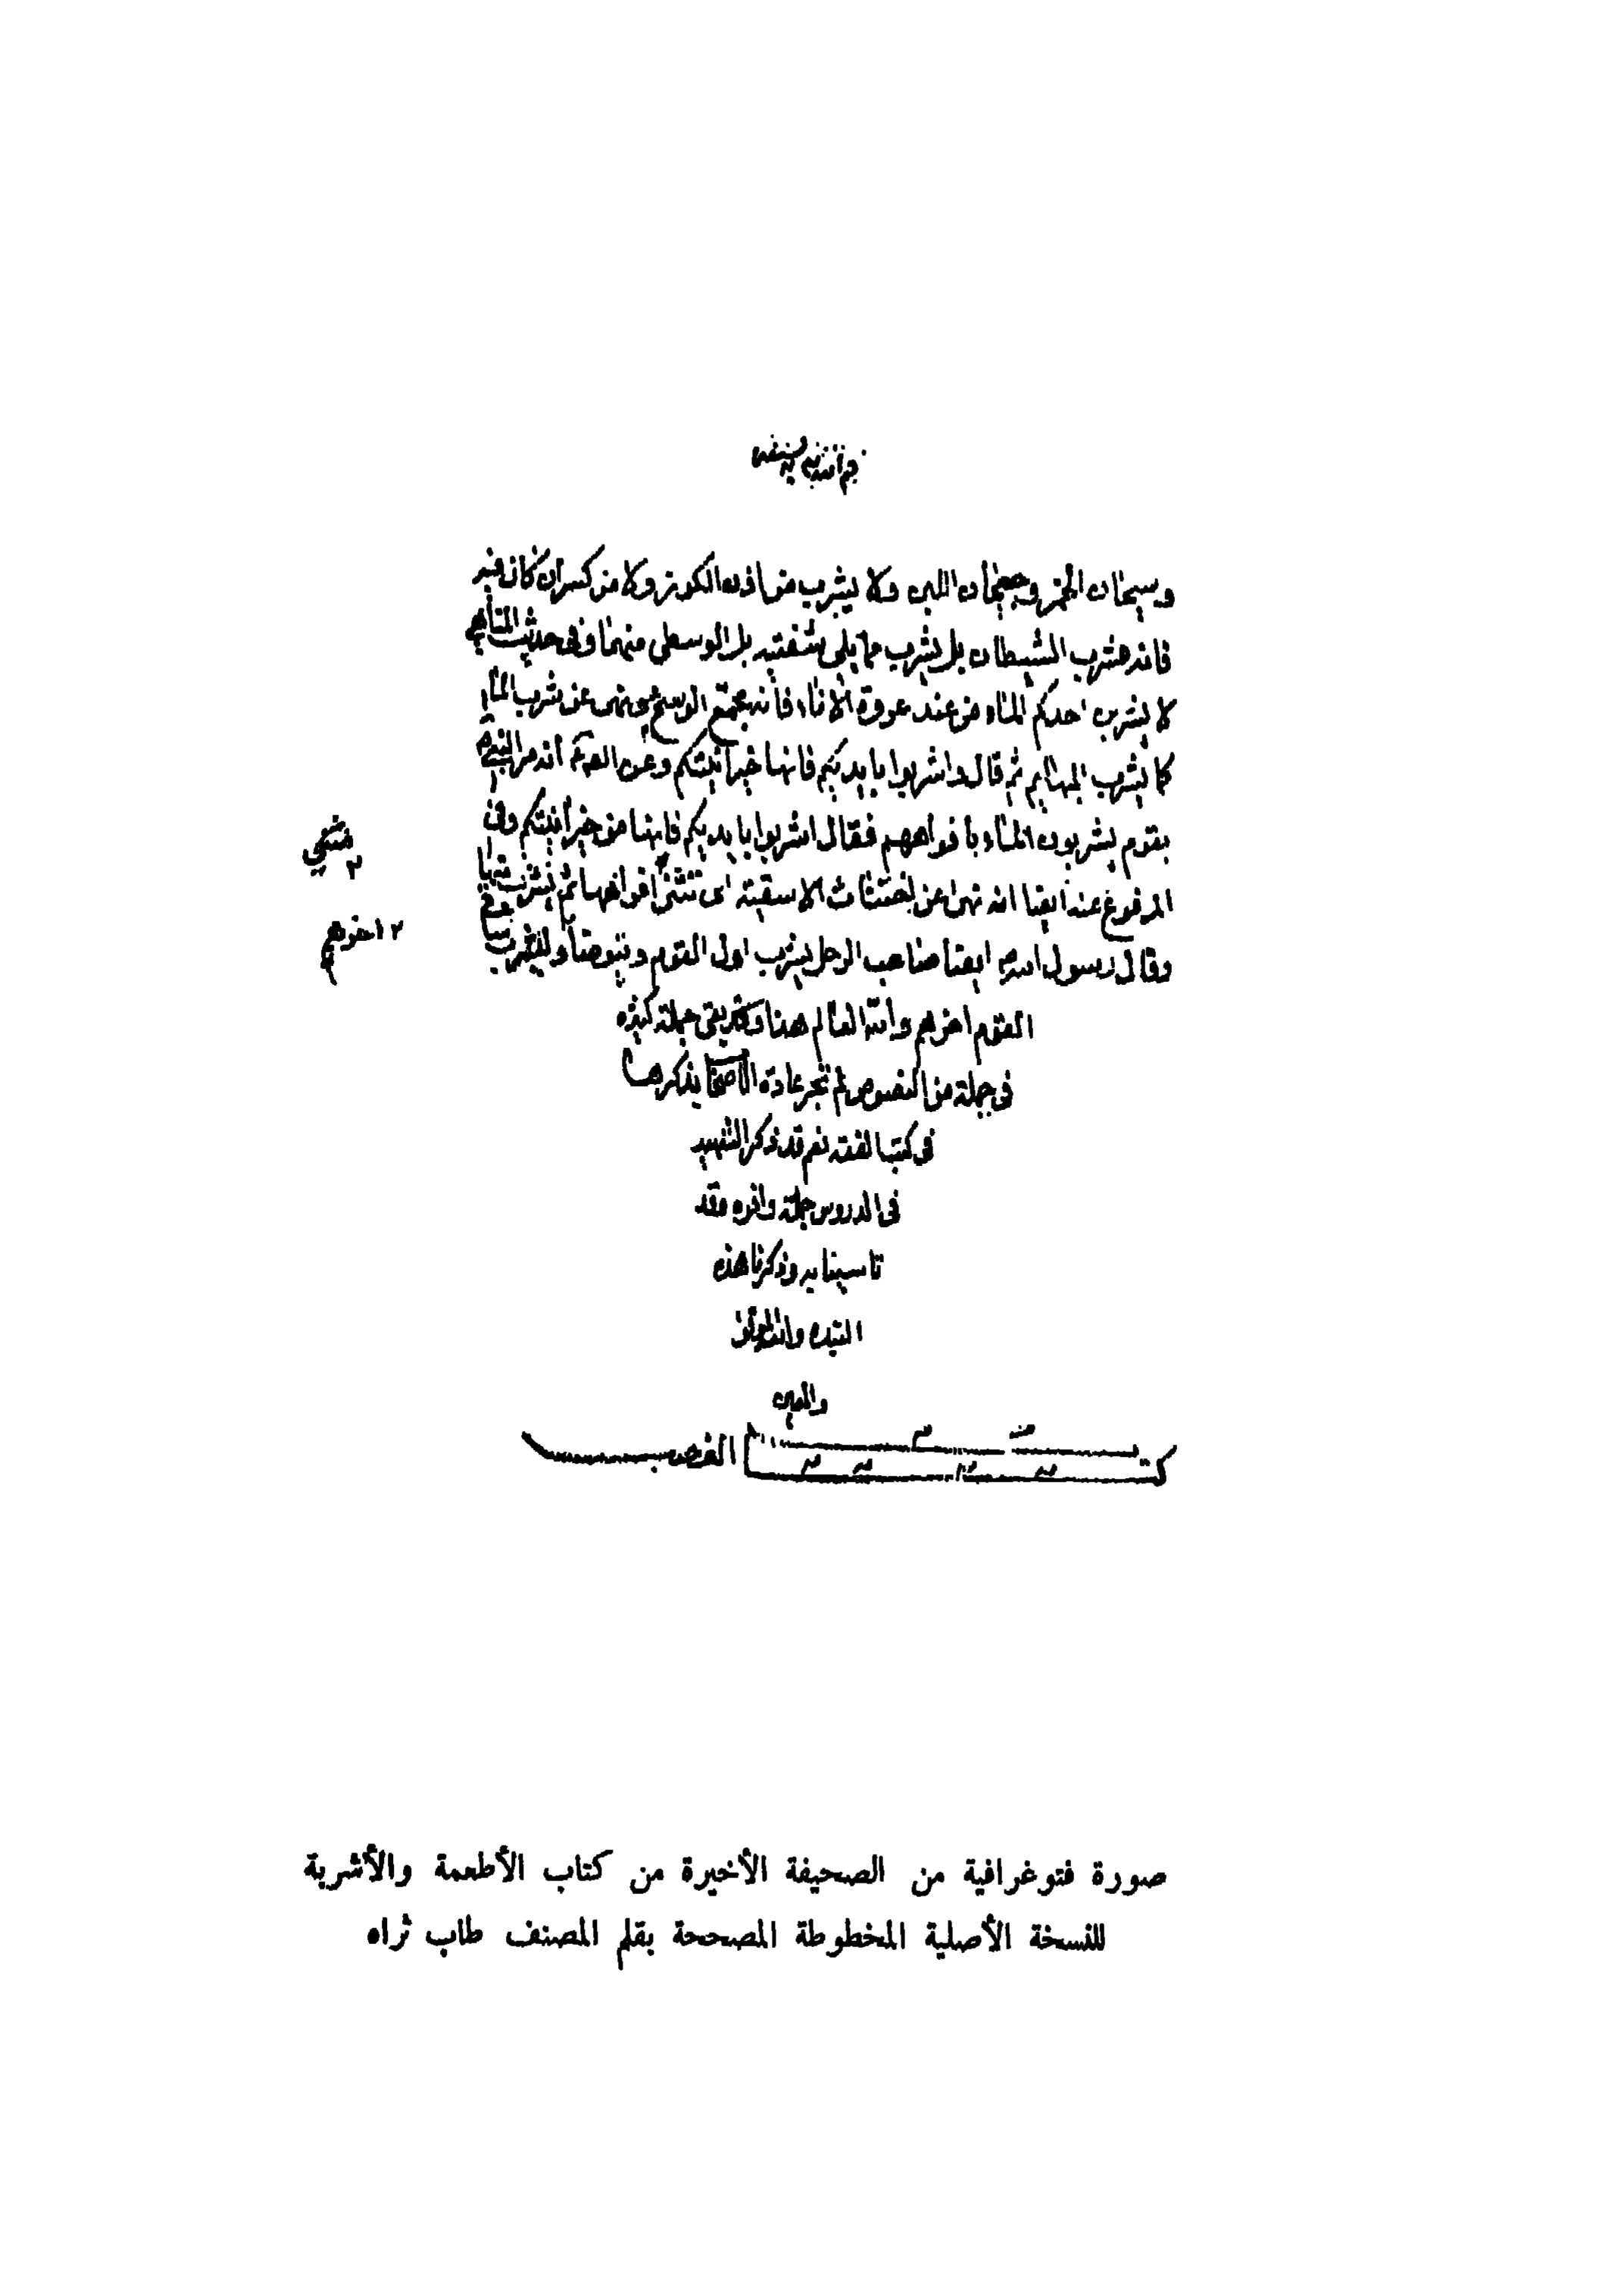 وسيحان الخمر وجيحان اللبن ولا يشرب من اذن الكوز ولا من كسر ان كان فيه
فانه مشرب الشيطان بل يشرب مما يلى شفتيه بل الوسطى منهما وفى حديث المناهي
لا يشربن احدكم الماء من عند عروة الاناء فانه مجتمع الوسخ ونهى عن شرب الماء
كما يشرب البهايم ثم قال واشربوا بايديكم فانها خير انيتكم وعن انه مر النبى ص
بقوم يشربون الماء بافواههم فقال اشربوا بايديكم فانها من خير انيتكم وفى
المرفوع عنه ايضا انه نهى عن اختناث الاسقية اى تثنى افواهها ثم يشرب منها
وقال رسول الله ص ايضا صاحب الرحل يشرب اول القوم ويتوضأ
القوم اخرهم والله العالم هذا وقد بقى جملة كثيره
فى جملة من النصوص لم تجر عادة الأصحاب بذكرها
فى كتب الفقه نعم قد ذكر الشهيد
فى الدروس جملة وافره وقد
تاسينا به وذكرنا هذه
النبذه والله الموفق
والمعين
كتاب الغصب
٢ اخرهم
صورة فتوغرافية من الصحيفة الأخيرة من كتاب الأطعمة والأشربة
للنسخة الأصلية المخطوطة المصححة بقلم المصنف طاب ثراه